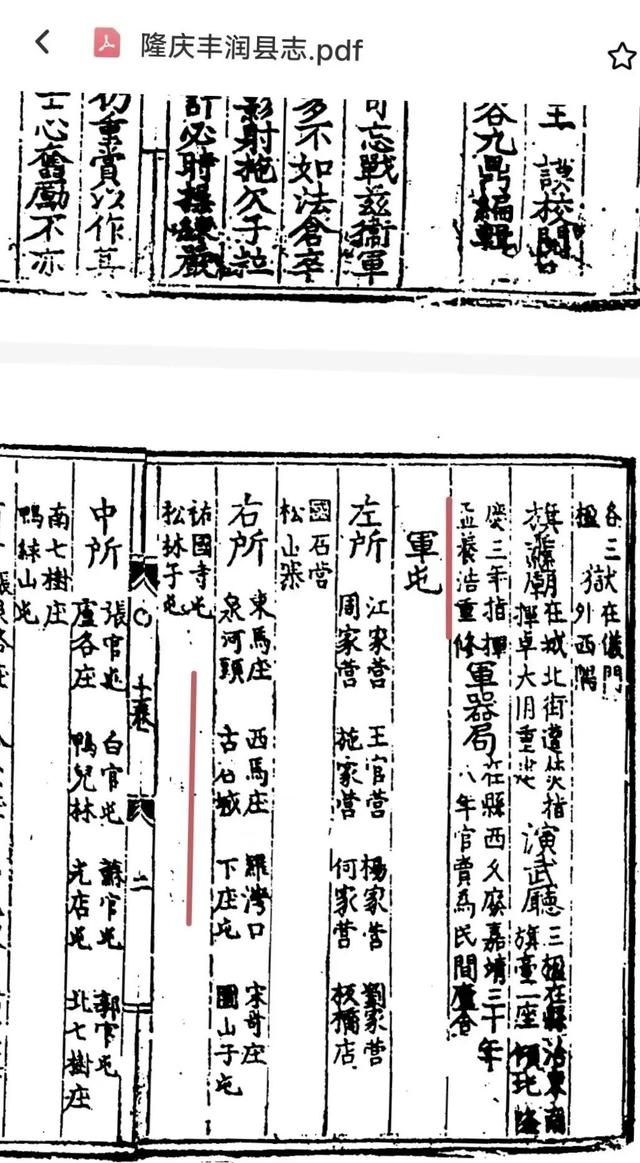 隆庆丰润县志.pdf
谷九鼎編輯
可忘戰茲衛軍
多不如法倉卒
影射拖欠子粒
必時操練嚴
仍重賞以作其
士心奮勵不亦
各三
楹
獄
在儀門
外西隅
旗纛廟
在城北街遭災指
揮卓大用重建
演武廳
三楹在縣治東南
旗臺一座傾圮隆
慶三年指揮
孟養浩重修
軍器局
在縣西久廢嘉靖三十年
八年官賣為民間廬舍
軍屯
左所
江家营 王官营 楊家营 劉家营
周家营 施家营 何家营 板橋店
國石营
松山寨
右所
東馬庄 西馬庄 羅灣口 宋哥庄
泉河頭 古石城 下庄屯 團山子屯
祐國寺屯
松林子屯
二
中所
張官屯 白官屯 蘇官屯 郭官屯
盧各庄 鴨兒林 尤店屯 北七樹庄
南七樹庄
鴨絲山屯